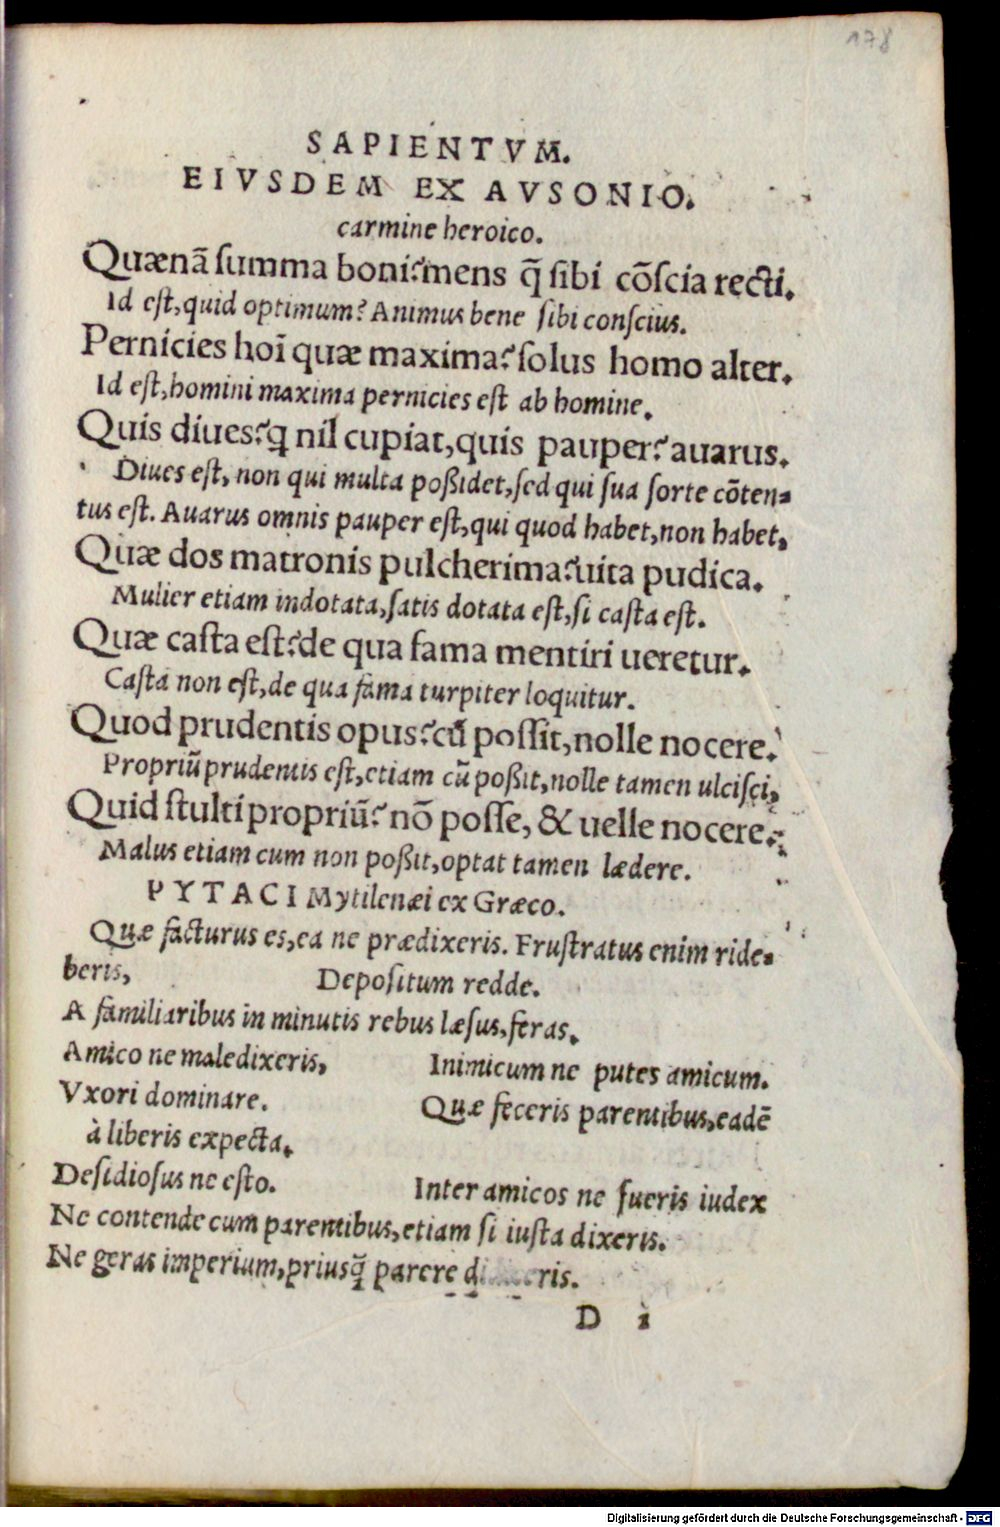 178
SAPIENTVM.
EIVSDEM EX AVSONIO.
carmine heroico.
Quænã ſumma boni? mens q̃ ſibi cõſcia recti.
Id eſt, quid optimum? Animus bene ſibi conſcius.
Pernicies hoĩ quæ maxima? ſolus homo alter.
Id eſt, homini maxima pernicies eſt ab homine.
Quis diues? q nil cupiat, quis pauper? auarus.
Diues eſt, non qui multa poßidet, ſed qui ſua ſorte cõten-
tus eſt. Auarus omnis pauper eſt, qui quod habet, non habet.
Quæ dos matronis pulcherima? uita pudica.
Mulier etiam indotata, ſatis dotata eſt, ſi caſta eſt.
Quæ caſta eſt? de qua fama mentiri ueretur.
Caſta non eſt, de qua fama turpiter loquitur.
Quod prudentis opus? cũ poſſit, nolle nocere.
Propriũ prudentis eſt, etiam cũ poßit, nolle tamen ulciſci,
Quid ſtulti propriũ? nõ poſſe, & uelle nocere.
Malus etiam cum non poßit, optat tamen lædere.
PYTACI Mytilenæi ex Græco.
Quæ facturus es, ea ne prædixeris. Fruſtratus enim ride-
beris, Depoſitum redde.
A familiaribus in minutis rebus læſus, feras.
Amico ne maledixeris, Inimicum ne putes amicum.
Vxori dominare. Quæ feceris parentibus, eadẽ
à liberis expecta.
Deſidioſus ne eſto. Inter amicos ne fueris iudex
Ne contende cum parentibus, etiam ſi iuſta dixeris.
Ne geras imperium, priusq̃ parere
D i
Digitalisierung gefördert durch die Deutsche Forschungsgemeinschaft - DFG